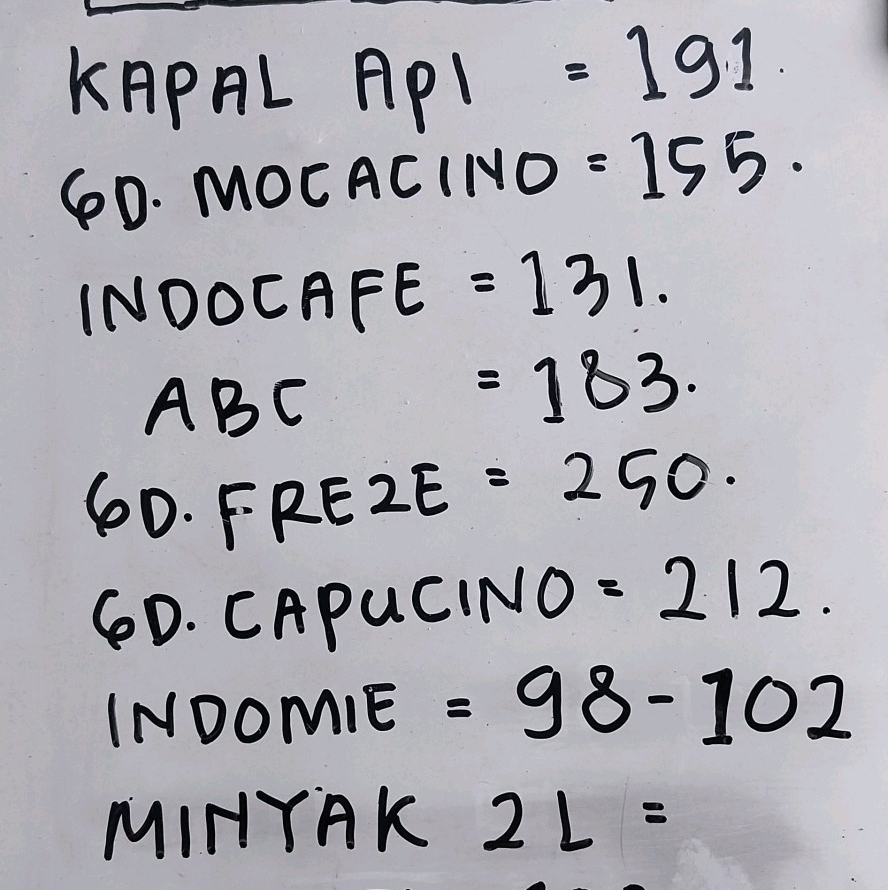 KAPAL API = 191.
GD. MOCACINO = 155.
INDOCAFE = 131.
ABC = 183.
GD. FREZE = 250.
GD. CAPUCINO = 212.
INDOMIE = 98-102
MINYAK 2L =